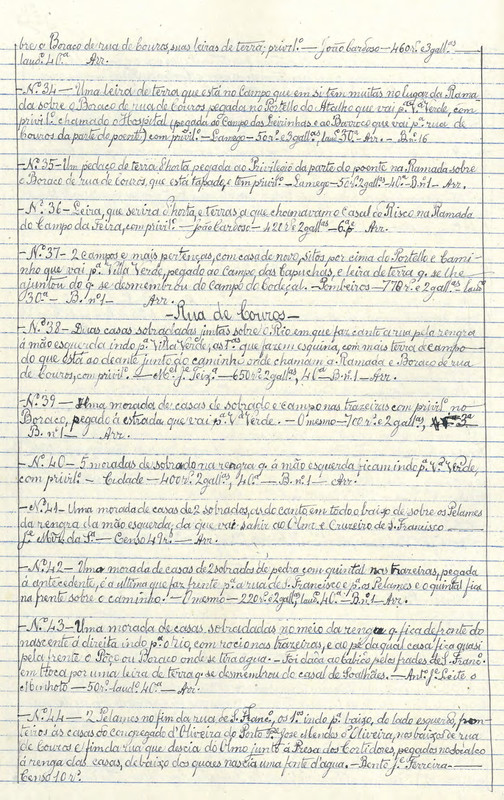 bre o Boraco de rua de Couros, suas leiras de terra; privil.º — João Cardoso — 460 r.s e 3 gall.as
laud.º 40.ª Arr.
— N.º 34 — Uma leira de terra que está no Campo que em si tem muitas no lugar da Rama-
da sobre o Boraco de rua de Couros, pegada no Portello do Atalho que vai p.ª V.ª Verde, com
privil.º chamado o Hospital (pegada ao Campo das Beirinhas e ao Barroco que vai p.ª rua de
Couros da parte de poente) com privil.º — Lamego — 50 r.s e 3 gall.as, laud.º 30.ª — Arr. — B. n.º 16
— N.º 35 — Um pedaço de terra d'horta pegada ao Privilegio da parte do poente na Ramada sobre
o Boraco de rua de Couros, que está tapado, e tem privil.º — Lamego — 50 r.s 2 gall.as — 40.ª — B. n.º 1 — Arr.
— N.º 36 — Leira, que serve d'horta, e terras a que chamavam o Casal do Risco na Ramada
do Campo da Feira, com privil.º — João Cardoso — 420 r.s e 2 gall.as — 6.ª p.e Arr.
— N.º 37 — 2 campos e mais pertenças, com casa de novo, sitos por cima do Portello e Cami-
nho que vai p.ª Villa Verde, pegado ao Campo das Capuchas, e leira de terra q. se lhe
ajuntou do q. se desmembrou do Campo do Codeçal. — Pombeiros — 770 r.s e 2 gall.as — laud.º
30.ª — B. n.º 1 — Arr.
— Rua de Couros —
— N.º 38 — Duas casas sobradadas juntas sobre o Rio em que faz canto a rua pela rengra
á mão esquerda indo p.ª Villa Verde, as 1.as que fazem esquina, com mais terra de campo
do que está ao deante junto ao caminho onde chamam a Ramada e Boraco de rua
de Couros, com privil.º — M.el J.e Teix.ra — 650 r.s 2 gall.as, 40.ª — B. n.º 1 — Arr.
— N.º 39 — Uma morada de casas de sobrado e campo nas trazeiras com privil.º no
Boraco, pegado á estrada que vai p.ª V.ª Verde. — O mesmo — 700 r.s e 2 gall.as,
B. n.º 1 — Arr.
— N.º 40 — 5 moradas de sobrado na rengra q. á mão esquerda ficam indo p.ª V.ª Verde,
com privil.º — Cidade — 400 r.s 2 gall.as, 40.ª — B. n.º 1 — Arr.
— N.º 41 — Uma morada de casas de 2 sobrados, as do canto em todo o baixo de sobre os Pelames
da rengra da mão esquerda, da que vai sahir ao Olmo e Cruzeiro de S. Francisco —
— Censo 49 r.s — Arr.
— N.º 42 — Uma morada de casas de 2 sobrados de pedra com quintal nas trazeiras, pegada
á antecedente, é a ultima que faz frente p.ª a rua de S. Francisco e p.ª os Pelames e o quintal fica
na frente sobre o caminho. — O mesmo — 220 r.s e 2 gall.as, laud.º 40.ª — B. n.º 1 — Arr.
— N.º 43 — Uma morada de casas, sobradadas no meio da rengra q. fica defronte do
nascente á direita indo p.ª o rio, com rocio nas trazeiras, e ao pé da qual casa fica quasi
pela frente o Poço ou Boraco onde se tira agua. — Foi dada ao cabido pelos frades de S. Fran.co
em troca por uma leira de terra q. se desmembrou do casal de Toalhões. — Ant.º J.e Leite o
Minhoto — 50 r.s laud.º 40.ª — Arr.
— N.º 44 — 2 Pelames no fim da rua de S. Fran.co, os 1.os indo p.ª baixo, do lado esquerdo, fron-
teiros ás casas do congregado d'Oliveira do Porto P.e José Mendes d'Oliveira, nos baixos de rua
de Couros e fim da rua que descia do Olmo junto á Presa dos Cortidores, pegados no socalco
á renga das casas, debaixo dos quaes nascia uma fonte d'agua. — Bento J.e Ferreira —
Censo 10 r.s